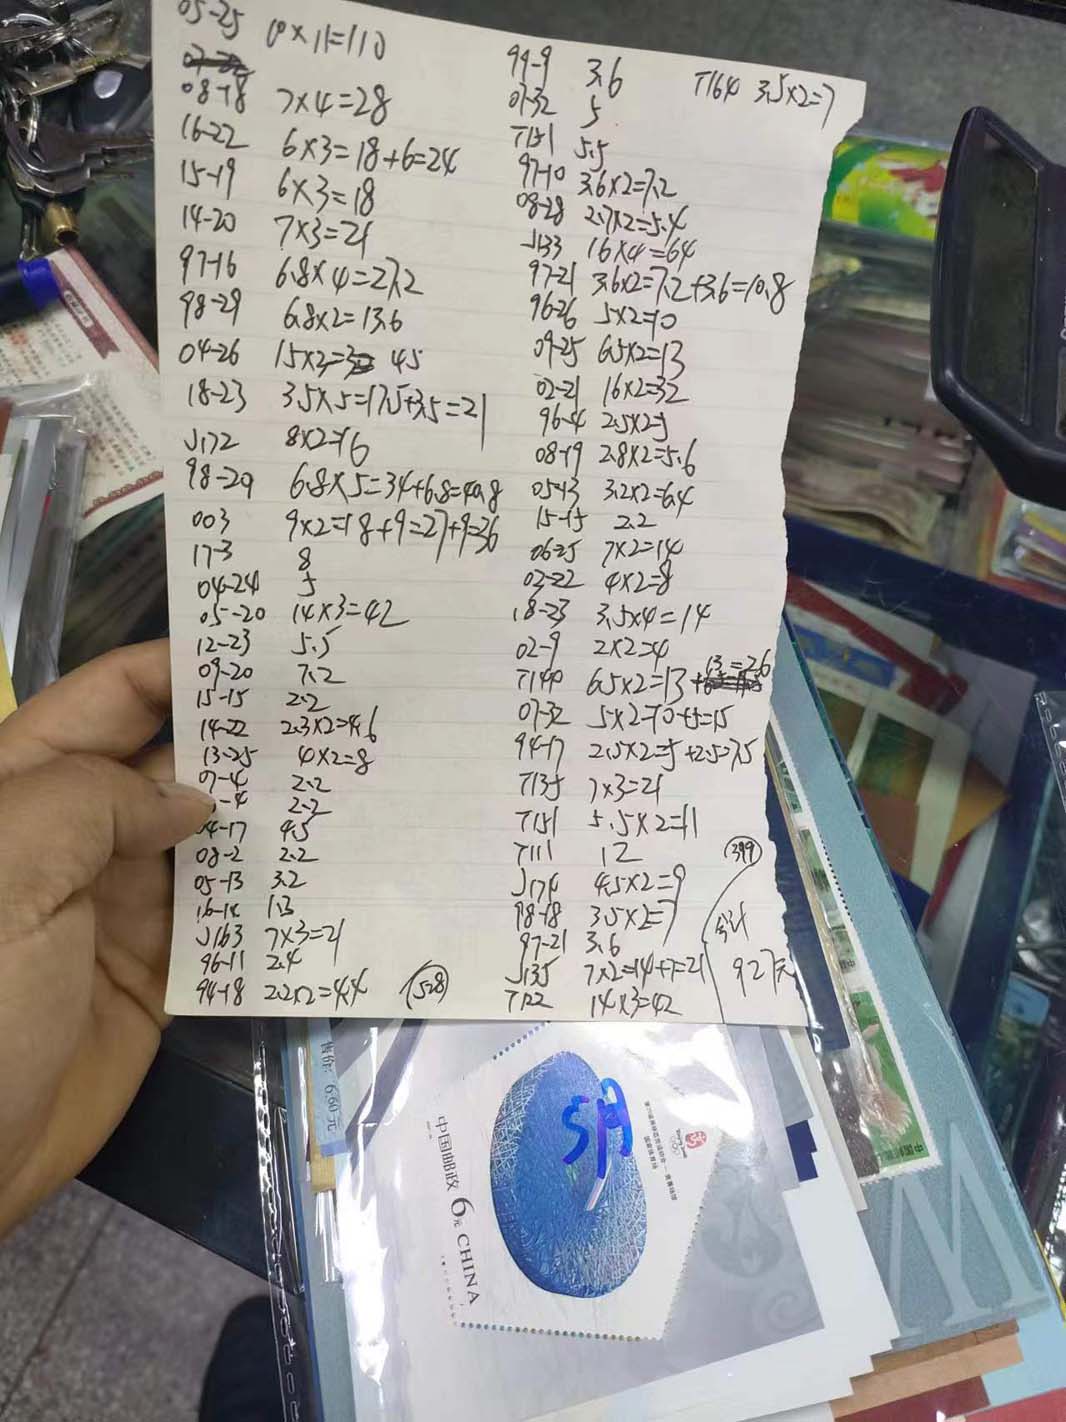 05-25 10×11=110
08-18 7×4=28
16-22 6×3=18+6=24
15-19 6×3=18
14-20 7×3=21
97-16 6.8×4=27.2
98-29 6.8×2=13.6
04-26 15×3= 45
18-23 3.5×5=17.5+3.5=21
J172 8×2=16
98-29 6.8×5=34+6.8=40.8
003 9×2=18+9=27+9=36
17-3 8
04-24 5
05-20 14×3=42
12-23 5.5
09-20 7.2
15-15 2.2
14-22 2.3×2=4.6
13-25 4×2=8
07-4 2.2
-4 2.2
04-17 4.5
08-2 2.2
05-13 3.2
16-14 1.3
J163 7×3=21
96-11 2.4
94-18 2.2×2=4.4
528
99-9 3.6
07-32 5
T151 5.5
97-10 3.6×2=7.2
08-28 2.7×2=5.4
J133 16×4=64
97-21 3.6×2=7.2+3.6=10.8
96-26 5×2=10
09-25 6.5×2=13
02-21 16×2=32
96-4 2.5×2=5
08-19 2.8×2=5.6
05-13 3.2×2=6.4
15-15 2.2
06-25 7×2=14
03-22 4×2=8
18-23 3.5×4=14
02-9 2×2=4
T140 6.5×2=13+13=26
07-32 5×2=10+5=15
94-17 2.5×2=5+2.5=7.5
T135 7×3=21
T151 5.5×2=11
T111 12
J174 4.5×2=9
98-18 3.5×2=7
97-21 3.6
J135 7×2=14+7=21
T122 14×3=42
T164 3.5×2=7
399
合计
927元
售价：6.60元
5月
中国邮政
6元 CHINA
国家体育场
Beijing 2008
中国邮
W